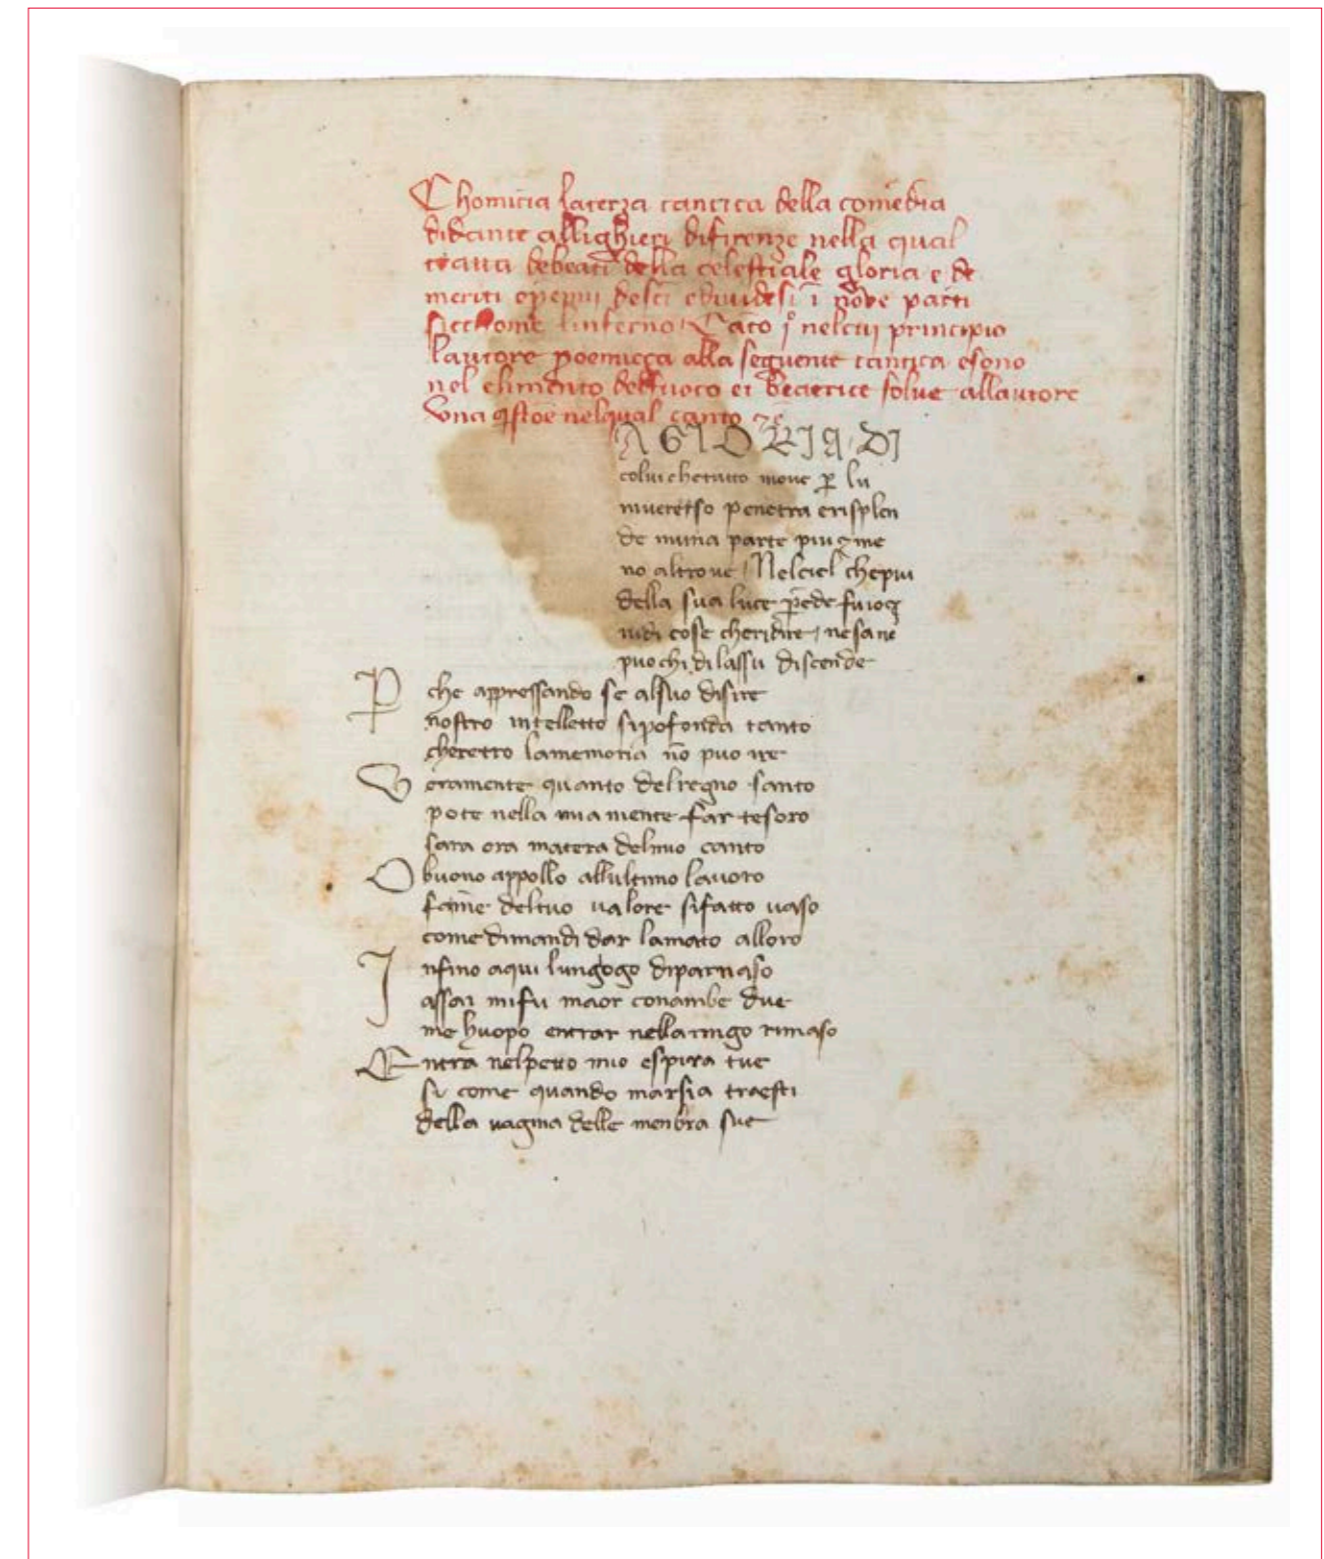 Chomicia laterza cantica della comedia
didante allighieri difirenze nella qual
tratta debeati della celestiale gloria e de
meriti epemii desci ediuidesi i noue parti
sicchome linferno Cato jo nelcui principio
lautore proemicça alla seguente cantica esono
nel elimento delfuoco ei beatrice solue allautore
vna qstoe nelqual canto
A GLORIA DI
colui chetutto moue p lu
niuerso penetra erisplen
de nuna parte piu z me
no altroue / Nelciel chepiu
della sua luce pede fuio z
uidi cose cheridire / ne sa ne
puo chi dilassu discende
P che appressando se alsuo disire
nostro intelletto sipofonda tanto
cheretro lamemoria no puo ire
V eramente quanto delregno santo
pote nella mia mente far tesoro
sara ora matera delmio canto
O buono appollo allultimo lauoro
fame deltuo ualore sifatto uaso
come dimandi dar lamato alloro
I nfino aqui lungogo diparnaso
assai mifu maor conambe due
me huopo entrar nellaringo rimaso
E ntra nelpetto mio espira tue
si come quando marsia traesti
della uagina delle menbra sue